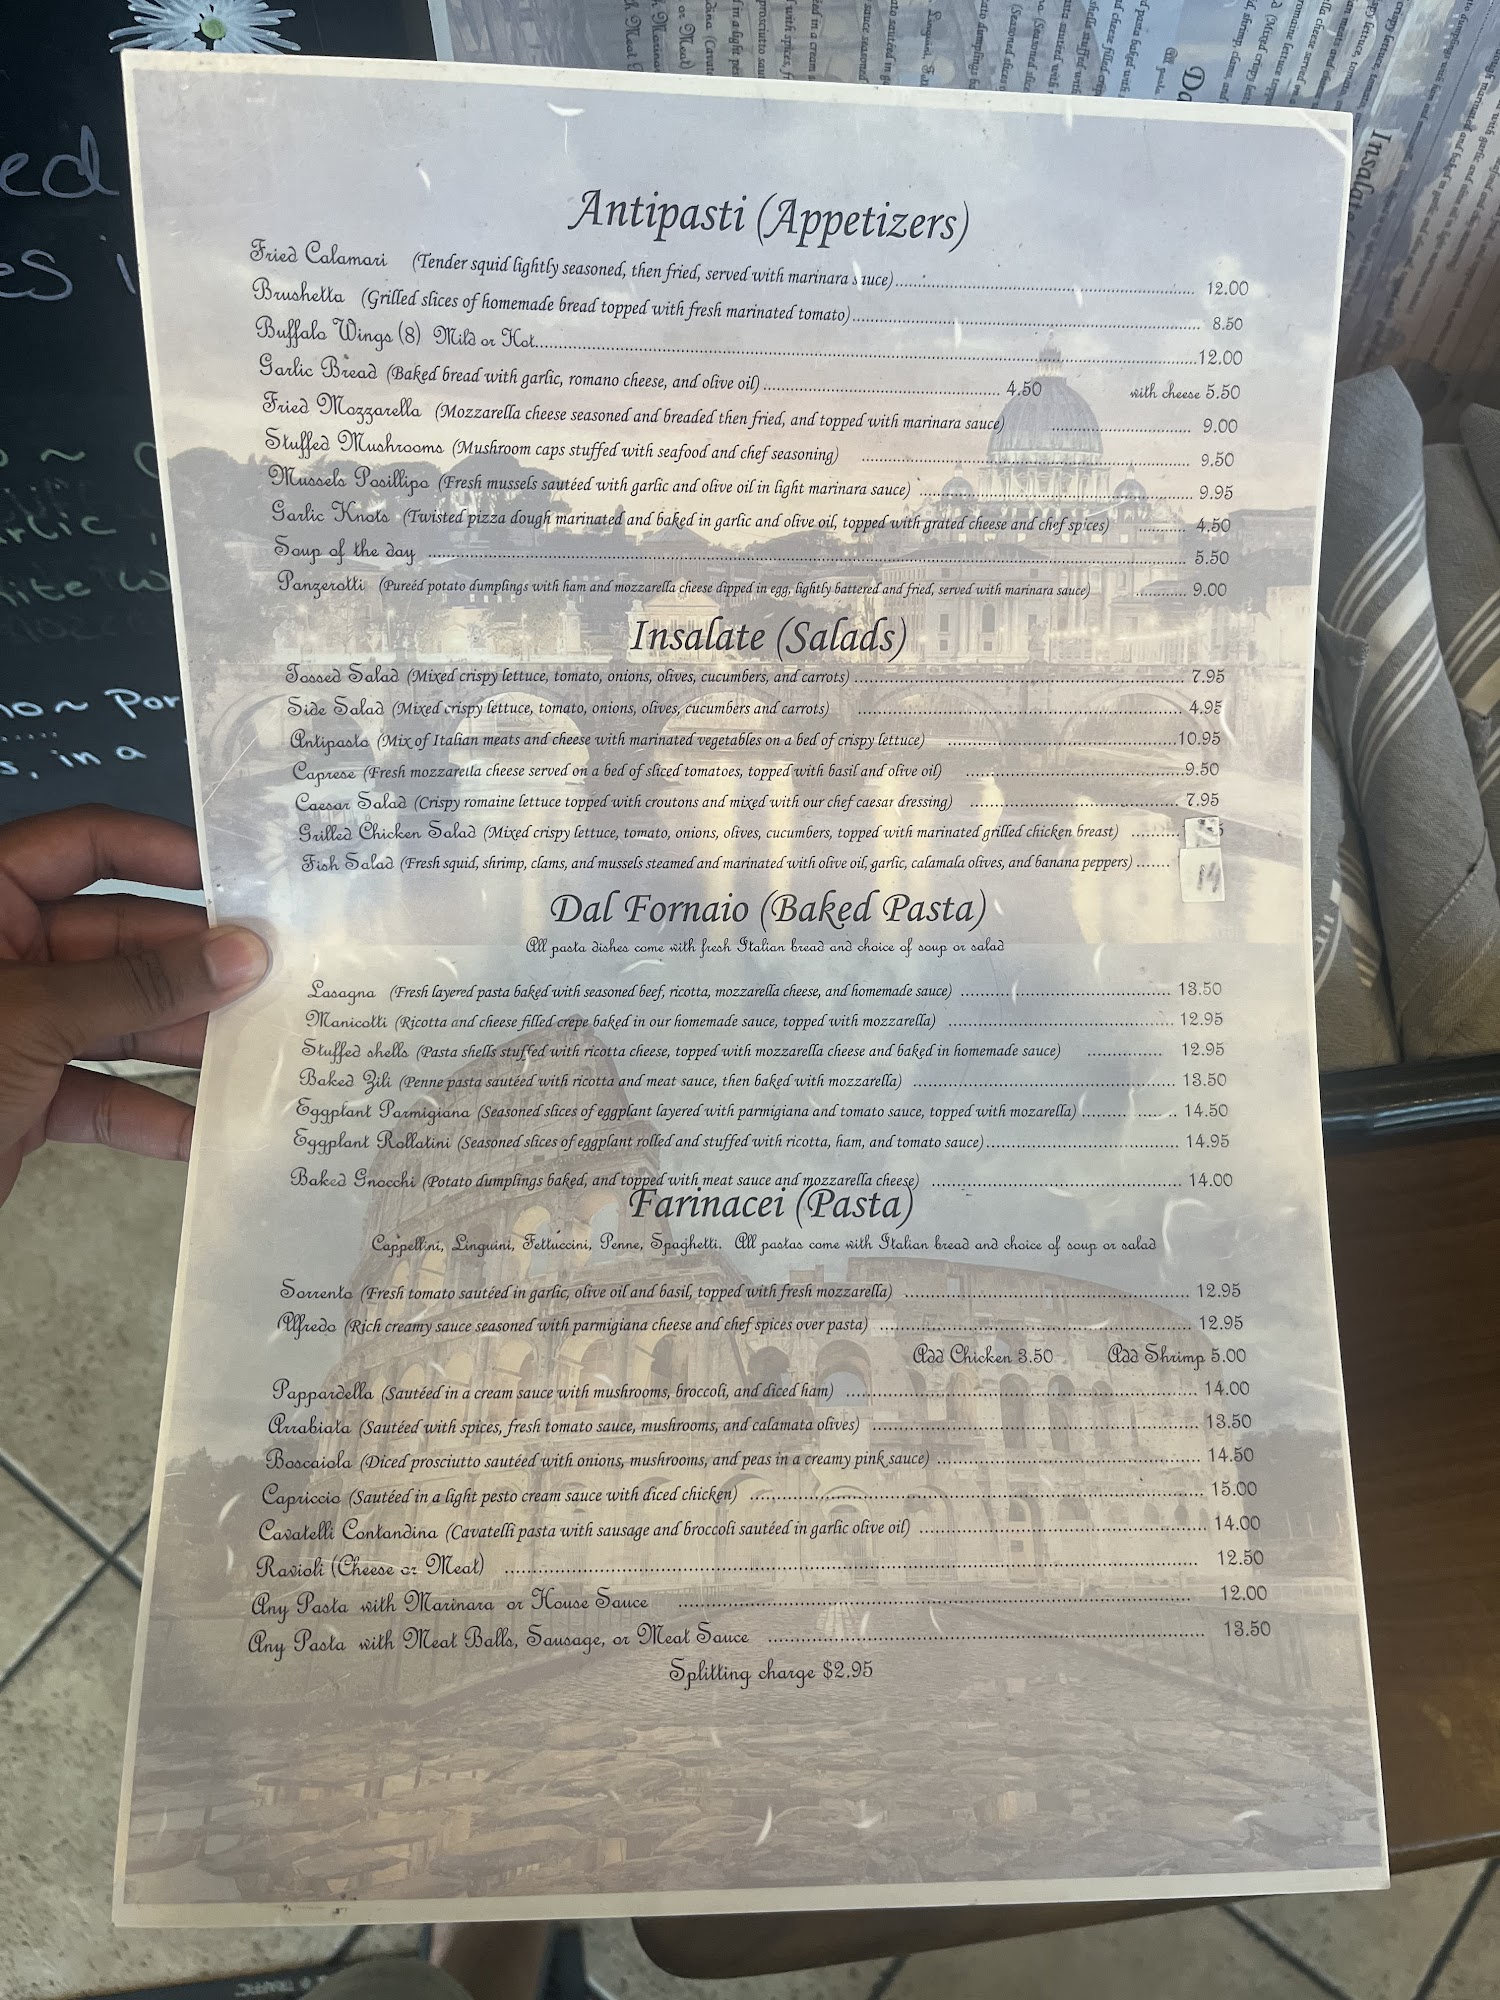 Antipasti (Appetizers)
Fried Calamari (Tender squid lightly seasoned, then fried, served with marinara sauce) 12.00
Brushetta (Grilled slices of homemade bread topped with fresh marinated tomato) 8.50
Buffalo Wings (8) Mild or Hot 12.00
Garlic Bread (Baked bread with garlic, romano cheese, and olive oil) 4.50 with cheese 5.50
Fried Mozzarella (Mozzarella cheese seasoned and breaded then fried, and topped with marinara sauce) 9.00
Stuffed Mushrooms (Mushroom caps stuffed with seafood and chef seasoning) 9.50
Mussels Posillipo (Fresh mussels sautéed with garlic and olive oil in light marinara sauce) 9.95
Garlic Knots (Twisted pizza dough marinated and baked in garlic and olive oil, topped with grated cheese and chef spices) 4.50
Soup of the day 5.50
Panzerotti (Pureéd potato dumplings with ham and mozzarella cheese dipped in egg, lightly battered and fried, served with marinara sauce) 9.00
Insalate (Salads)
Tossed Salad (Mixed crispy lettuce, tomato, onions, olives, cucumbers, and carrots) 7.95
Side Salad (Mixed crispy lettuce, tomato, onions, olives, cucumbers and carrots) 4.95
Antipasto (Mix of Italian meats and cheese with marinated vegetables on a bed of crispy lettuce) 10.95
Caprese (Fresh mozzarella cheese served on a bed of sliced tomatoes, topped with basil and olive oil) 9.50
Caesar Salad (Crispy romaine lettuce topped with croutons and mixed with our chef caesar dressing) 7.95
Grilled Chicken Salad (Mixed crispy lettuce, tomato, onions, olives, cucumbers, topped with marinated grilled chicken breast)
Fish Salad (Fresh squid, shrimp, clams, and mussels steamed and marinated with olive oil, garlic, calamala olives, and banana peppers) 14
Dal Fornaio (Baked Pasta)
All pasta dishes come with fresh Italian bread and choice of soup or salad
Lasagna (Fresh layered pasta baked with seasoned beef, ricotta, mozzarella cheese, and homemade sauce) 13.50
Manicotti (Ricotta and cheese filled crepe baked in our homemade sauce, topped with mozzarella) 12.95
Stuffed shells (Pasta shells stuffed with ricotta cheese, topped with mozzarella cheese and baked in homemade sauce) 12.95
Baked Zili (Penne pasta sautéed with ricotta and meat sauce, then baked with mozzarella) 13.50
Eggplant Parmigiana (Seasoned slices of eggplant layered with parmigiana and tomato sauce, topped with mozarella) 14.50
Eggplant Rollatini (Seasoned slices of eggplant rolled and stuffed with ricotta, ham, and tomato sauce) 14.95
Baked Gnocchi (Potato dumplings baked, and topped with meat sauce and mozzarella cheese) 14.00
Farinacei (Pasta)
Cappellini, Linguini, Fettuccini, Penne, Spaghetti. All pastas come with Italian bread and choice of soup or salad
Sorrento (Fresh tomato sautéed in garlic, olive oil and basil, topped with fresh mozzarella) 12.95
Alfredo (Rich creamy sauce seasoned with parmigiana cheese and chef spices over pasta) 12.95
Add Chicken 3.50 Add Shrimp 5.00
Pappardella (Sautéed in a cream sauce with mushrooms, broccoli, and diced ham) 14.00
Arrabiata (Sautéed with spices, fresh tomato sauce, mushrooms, and calamata olives) 13.50
Boscaiola (Diced prosciutto sautéed with onions, mushrooms, and peas in a creamy pink sauce) 14.50
Capriccio (Sautéed in a light pesto cream sauce with diced chicken) 15.00
Cavatelli Contandina (Cavatelli pasta with sausage and broccoli sautéed in garlic olive oil) 14.00
Ravioli (Cheese or Meat) 12.50
Any Pasta with Marinara or House Sauce 12.00
Any Pasta with Meat Balls, Sausage, or Meat Sauce 13.50
Splitting charge $2.95